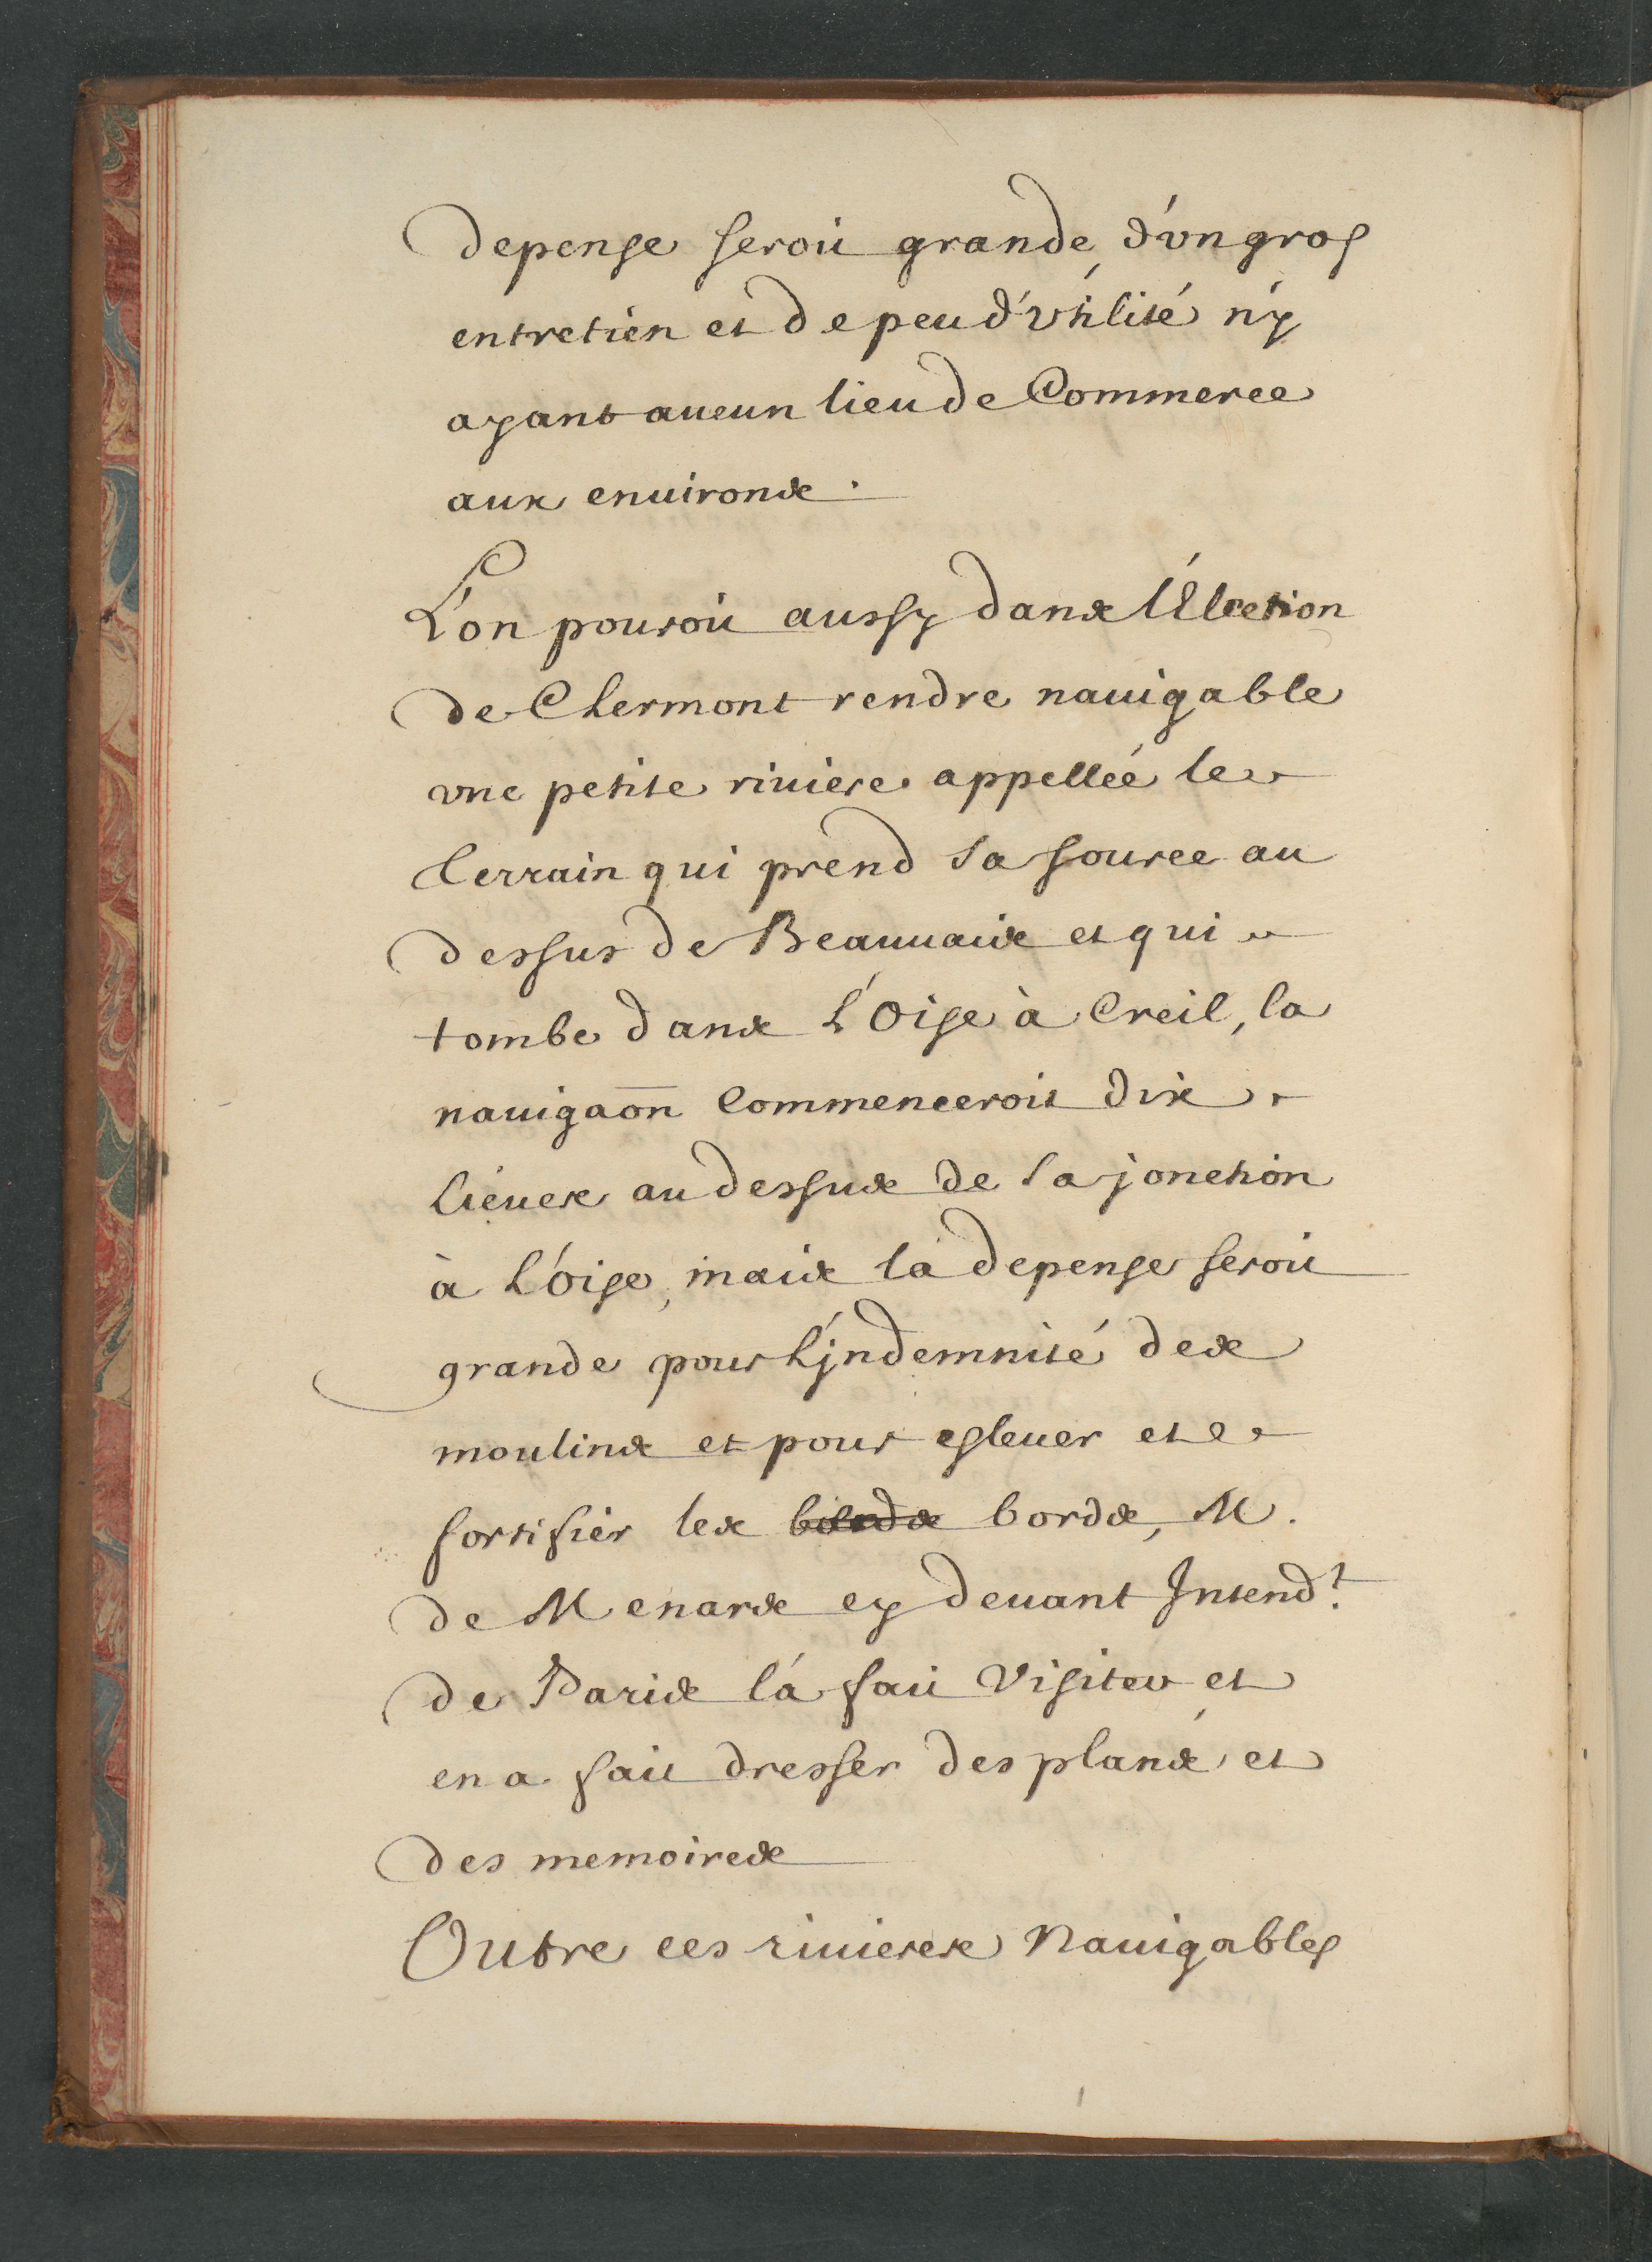 depense seroit grande, d'vn gros
entretien et de peu d'vtilité n'y
ayant aucun lieu de Commerce
aux enuirons.
L'on pouroit aussy dans l'Election
de Clermont rendre nauigable
vne petite riuiere appelleé le
Terrain qui prend sa source au
dessus de Beauuais et qui
tombe dans L'Oise à Creil, la
nauigaōn Commenceroit dix
lieües au dessus de la jonction
à L'Oise, mais la depense seroit
grande pour L'jndemnité des
moulins et pour esleuer et
fortifier les bords bords, M.
de Menars cy deuant Intend.t
de Paris l'a fait Visiter et
en a fait dresser des plans et
des memoires
Outre ces riuieres Nauigables